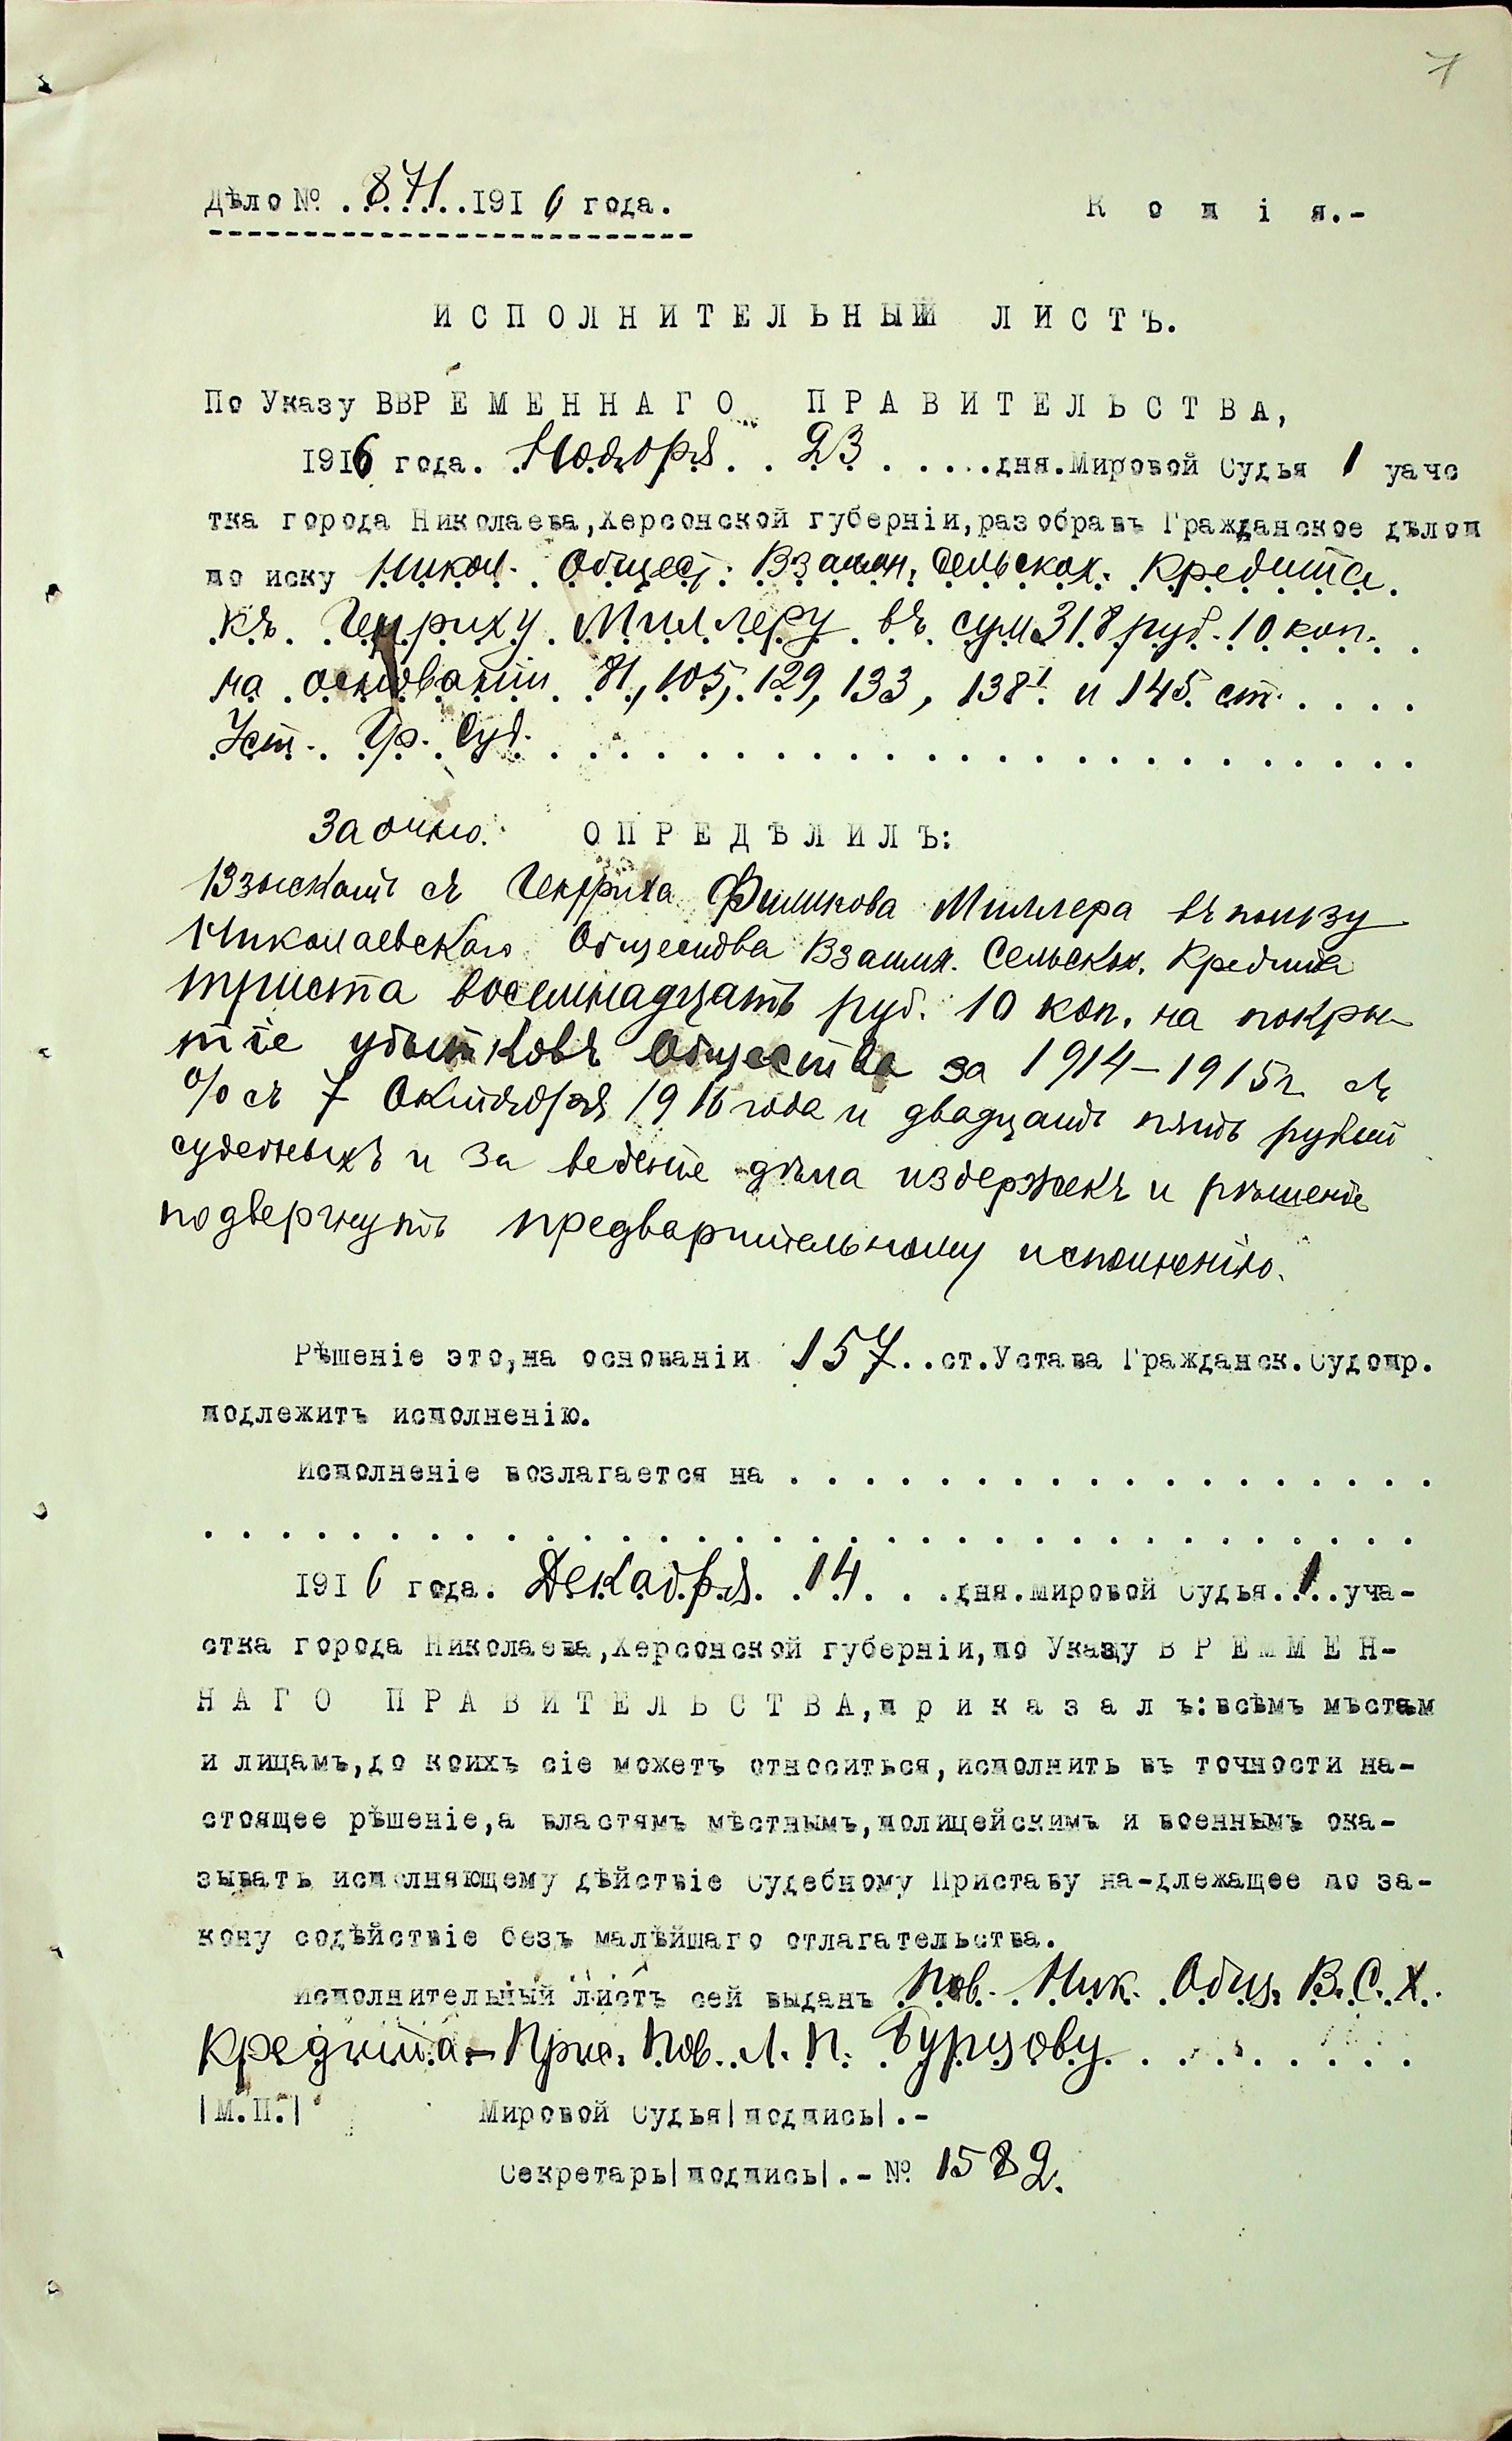 7
Дѣло № . 871 . 1916 года. К о п і я.-
И С П О Л Н И Т Е Л Ь Н Ы Й Л И С Т Ъ.
По Указу ВВР Е М Е Н Н А Г О П Р А В И Т Е Л Ь С Т В А,
1916 года. Ноября . . 23 . . . . . дня. Мировой Судья 1 уачс
тка города Николаева, Херсонской губерніи, разобравъ Гражданское дѣлоп
по иску Никол. Общест. Взаимн. Сельскох. Кредита.
къ Генриху Миллеру въ сум 318 руб. 10 коп.
на основаніи 81, 105, 129, 133, 138¹ и 145 ст. . . . .
Уст. Гр. Суд. . . . . . . . . . . . . . . . . . . . . . . .
Заочно: О П Р Е Д Ѣ Л И Л Ъ:
Взыскать съ Генриха Миллера въ пользу
Николаевскаго Общества Взаимн. Сельскох. Кредита
триста восемнадцать руб. 10 коп. на покры-
тіе убытковъ Общества за 1914-1915 г. съ
% съ 7 Октября 1916 года и двадцать пять рублей
судебныхъ и за веденіе дѣла издержекъ и рѣшеніе
подвергнуть предварительному исполненію.
Рѣшеніе это, на основаніи 157 . . ст. Устава Гражданск. Судопр.
подлежитъ исполненію.
Исполненіе возлагается на . . . . . . . . . . . . . . . . .
. . . . . . . . . . . . . . . . . . . . . . . . . . . . . . . .
1916 года. Декабря. . 14 . . . дня. Мировой Судья. . 1 . . уча-
стка города Николаева, Херсонской губерніи, по Указу В Р Е М М Е Н-
Н А Г О П Р А В И Т Е Л Ь С Т В А, п р и к а з а л ъ: всѣмъ мѣстам
и лицамъ, до коихъ сіе можетъ относиться, исполнить въ точности на-
стоящее рѣшеніе, а властямъ мѣстнымъ, полицейскимъ и военнымъ ока-
зывать исполняющему дѣйствіе Судебному Приставу на-длежащее по за-
кону содѣйствіе безъ малѣйшаго отлагательства.
Исполнительный листъ сей выданъ Пов. Ник. Общ. В. С. Х.
Кредита - Прис. Пов. Л. П. Бурцову . . . . . . . .
|М.П.| Мировой Судья|подпись|.-
Секретарь|подпись|.- № 1582.